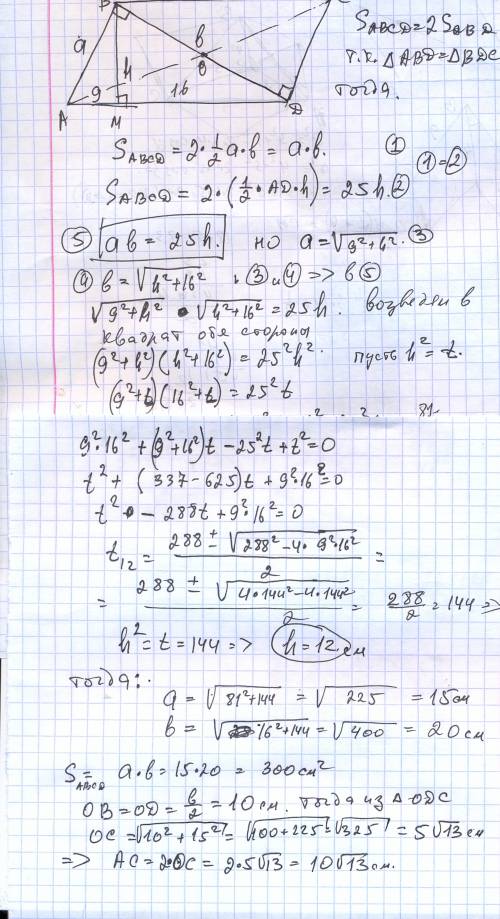 B
a
в
h
O
9
16
A
M
D
S ABCD = 2 S ABD
т.к. △ABD = △BDC
тогда.
S ABCD = 2·1/2 a·b = a·b. ①
①=②
S ABCD = 2·(1/2·AD·h) = 25h. ②
⑤ ab = 25h. но a = √9²+h². ③
④ b = √h²+16² ③ и ④ => в ⑤
√9²+h² · √h²+16² = 25h. возведём в
квадрат обе стороны
(9²+h²)(h²+16²) = 25²h². пусть h² = t.
(9²+t)(16²+t) = 25²t
9²·16² + (9²+16²)t − 25²t + t² = 0
t² + (337−625)t + 9²·16² = 0
t² − 288t + 9²·16² = 0
t₁₂ = 288 ± √288²−4·9²·16² / 2 =
= 288 ± √4·144²−4·144² / 2 = 288/2 = 144 =>
h² = t = 144 => h = 12 см
тогда:
a = √81²+144 = √225 = 15см
b = √16²+144 = √400 = 20 см
S ABCD = a·b = 15·20 = 300 см²
OB = OD = b/2 = 10 см. Тогда из △ODC
OC = √10²+15² = √100+225 = √325 = 5√13 см
=> AC = 2·OC = 2·5√13 = 10√13 см.